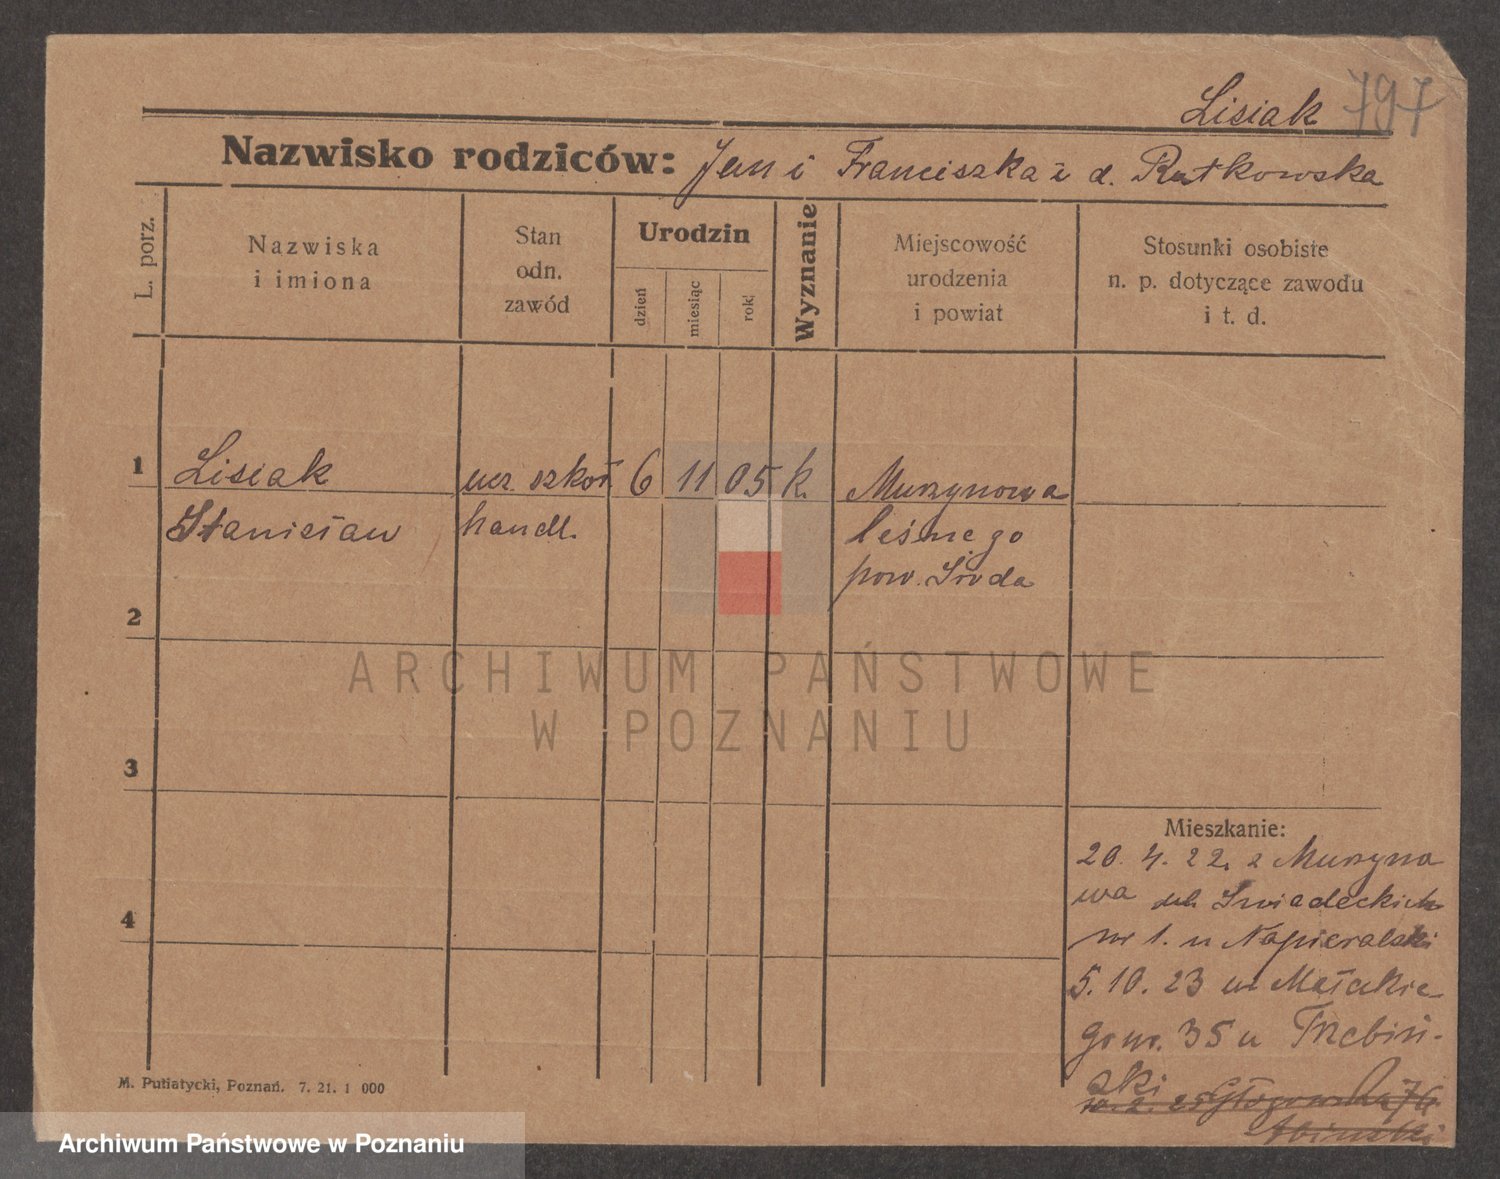 Lisiak 797
Nazwisko rodziców: Jan i Franciszka z d. Rutkowska
L. porz.
Nazwiska
i imiona
Stan
odn.
zawód
Urodzin
dzień
miesiąc
rok
Wyznanie
Miejscowość
urodzenia
i powiat
Stosunki osobiste
n. p. dotyczące zawodu
i t. d.
1 Lisiak ucz. szkoł. 6 11 05 k. Murzynowa
Stanisław handl. leśnego
pow. Środa
2
ARCHIWUM PAŃSTWOWE
W POZNANIU
3
Mieszkanie:
20. 4. 22. z Murzyno
wa ul. Śniadeckich
nr 1. u Napieralski
5. 10. 23 ul. Małeckie
go nr. 35 u Trzebiń-
ski
4
25 Głogowska 76
M. Putiatycki, Poznań. 7. 21. 1 000
Archiwum Państwowe w Poznaniu